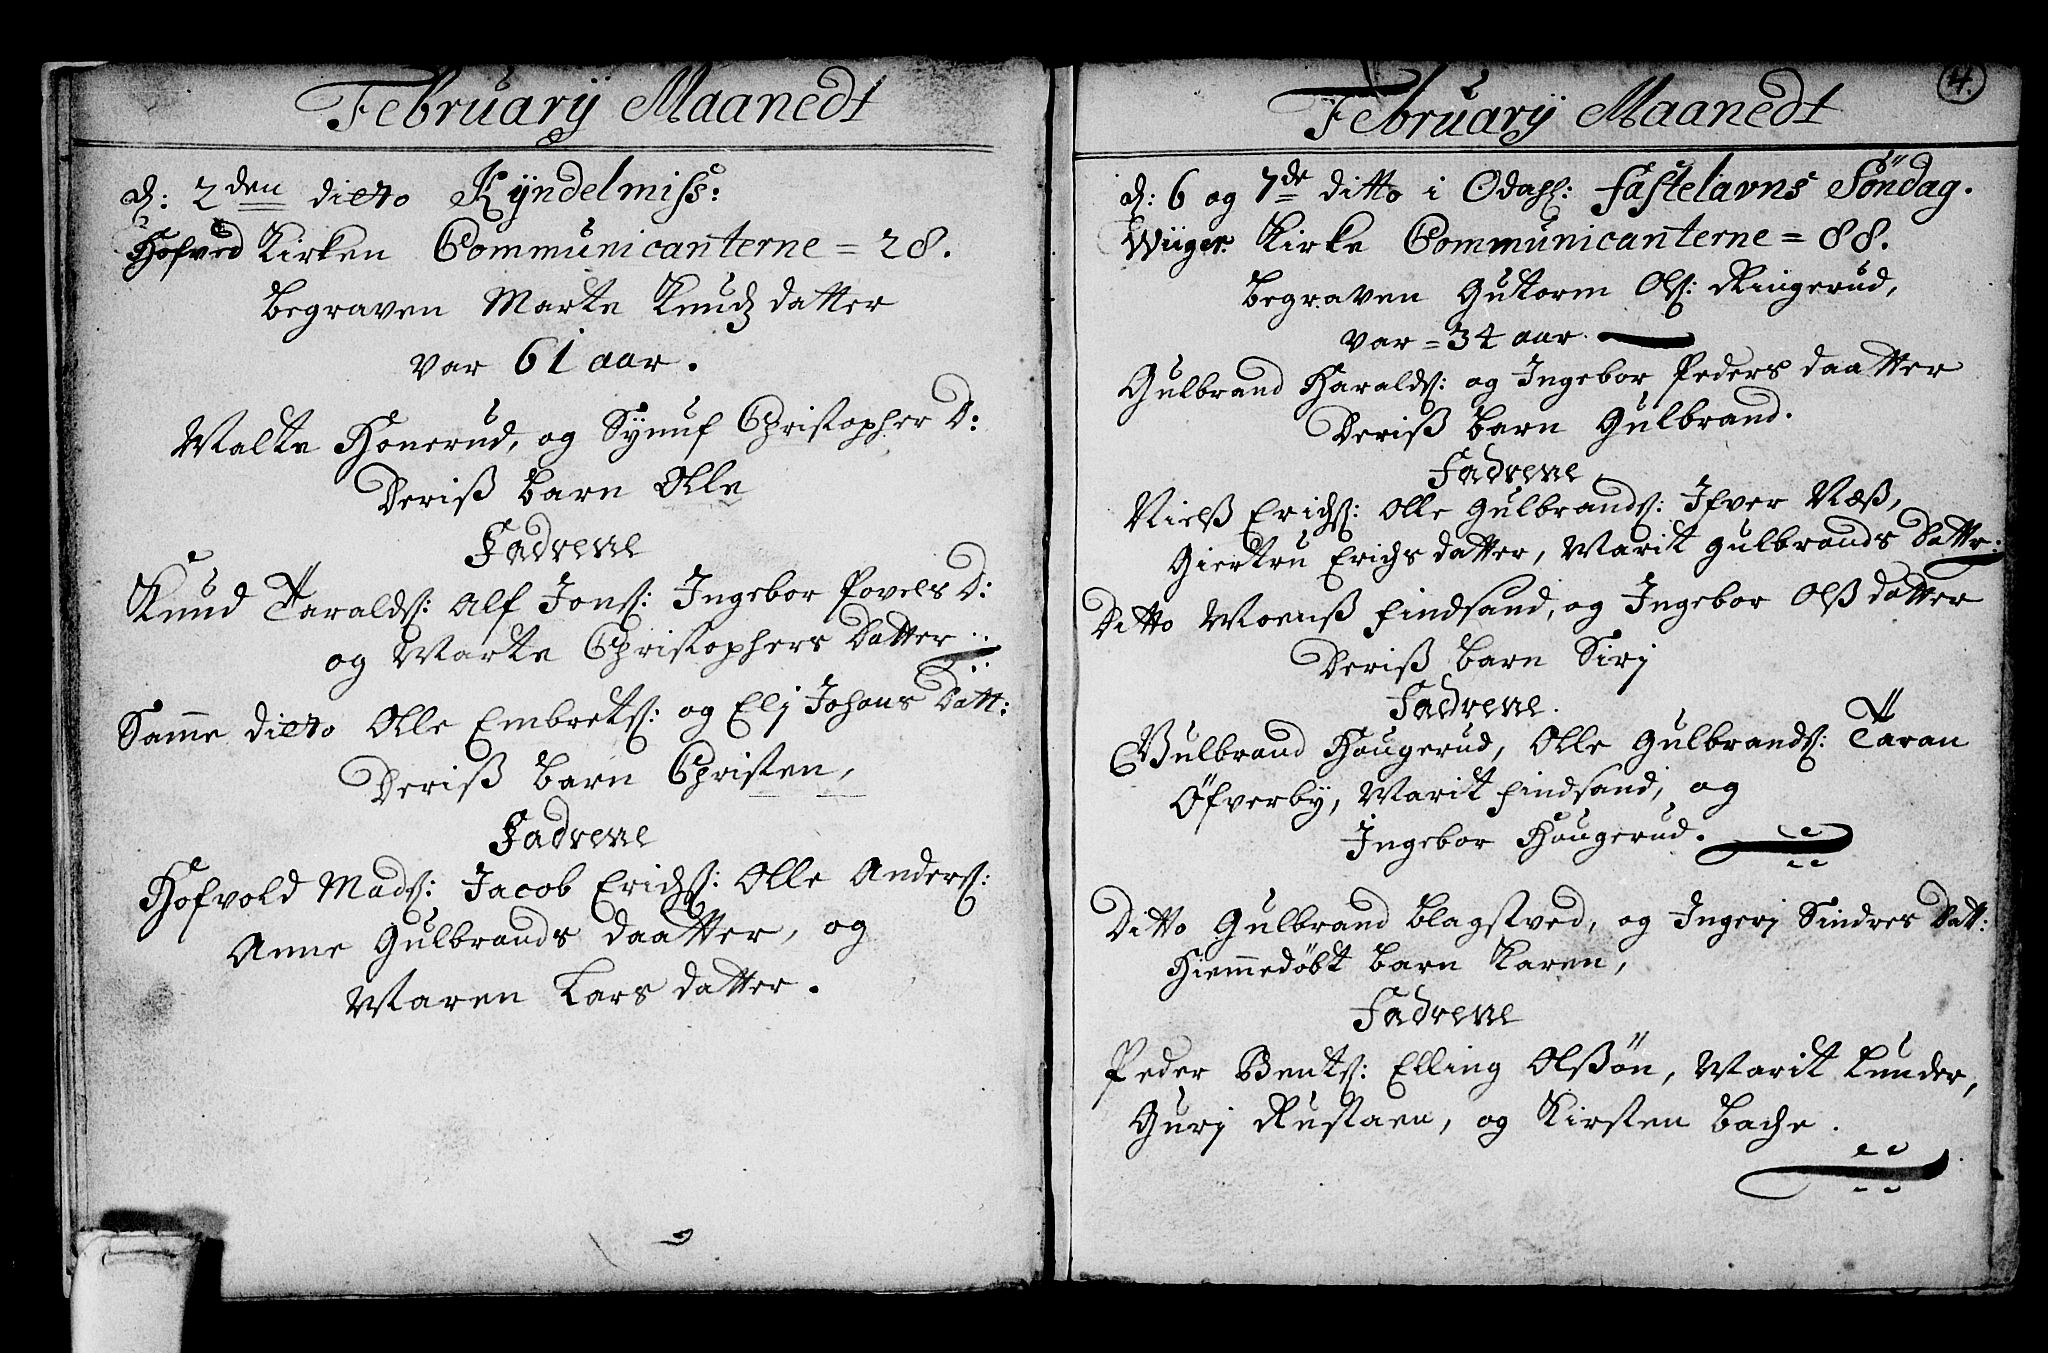 Februarij Maanedt
d: 2den dicto Kijndelmiss:
Hofved Kirken Communicanterne = 28.
begraven Marte Knudz datter
var 61 aar.
Malte Honerud, og Synuf Christopher D:
Deriß barn Olle
Fadrene
Knud Taralds: Alf Jons: Ingebor Povels D:
og Marte Christophers Datter
Samme dicto Olle Embrets: og Elj Johans Datt:
Deriß barn Christen,
Fadrene
Hofvold Mads: Jacob Erichs: Olle Anders:
Anne Gulbrands daatter, og
Maren Lars datter.
4.
Februarij Maanedt
d: 6 og 7de ditto i Odahl: fastelavns Söndag.
Wiiger Kirke Communicanterne = 88.
begraven Guttorm Ols: Ringerud,
var = 34 aar.
Gulbrand Haralds: og Ingebor Peders daatter
Deriß barn Gulbrand.
Fadrene
Nielß Erichs: Olle Gulbrands: Ifver Næß,
Giertru Erichs datter, Marit gulbrands Datter:
Ditto Moenß findsand, og Ingebor Olß datter
Deriß barn Sirj
Fadrene.
Gulbrand Hougerud, Olle Gulbrands: Taran
Öfverby, Marit findsand, og
Ingebor Hougerud.
Ditto Gulbrand blagstved, og Ingerj Sindres Datt:
Hiemmedöbt barn Karen,
Fadrene
Peder Bents: Elling Olßön, Marit Lunder,
Gurj Rustaen, og Kirsten bache.